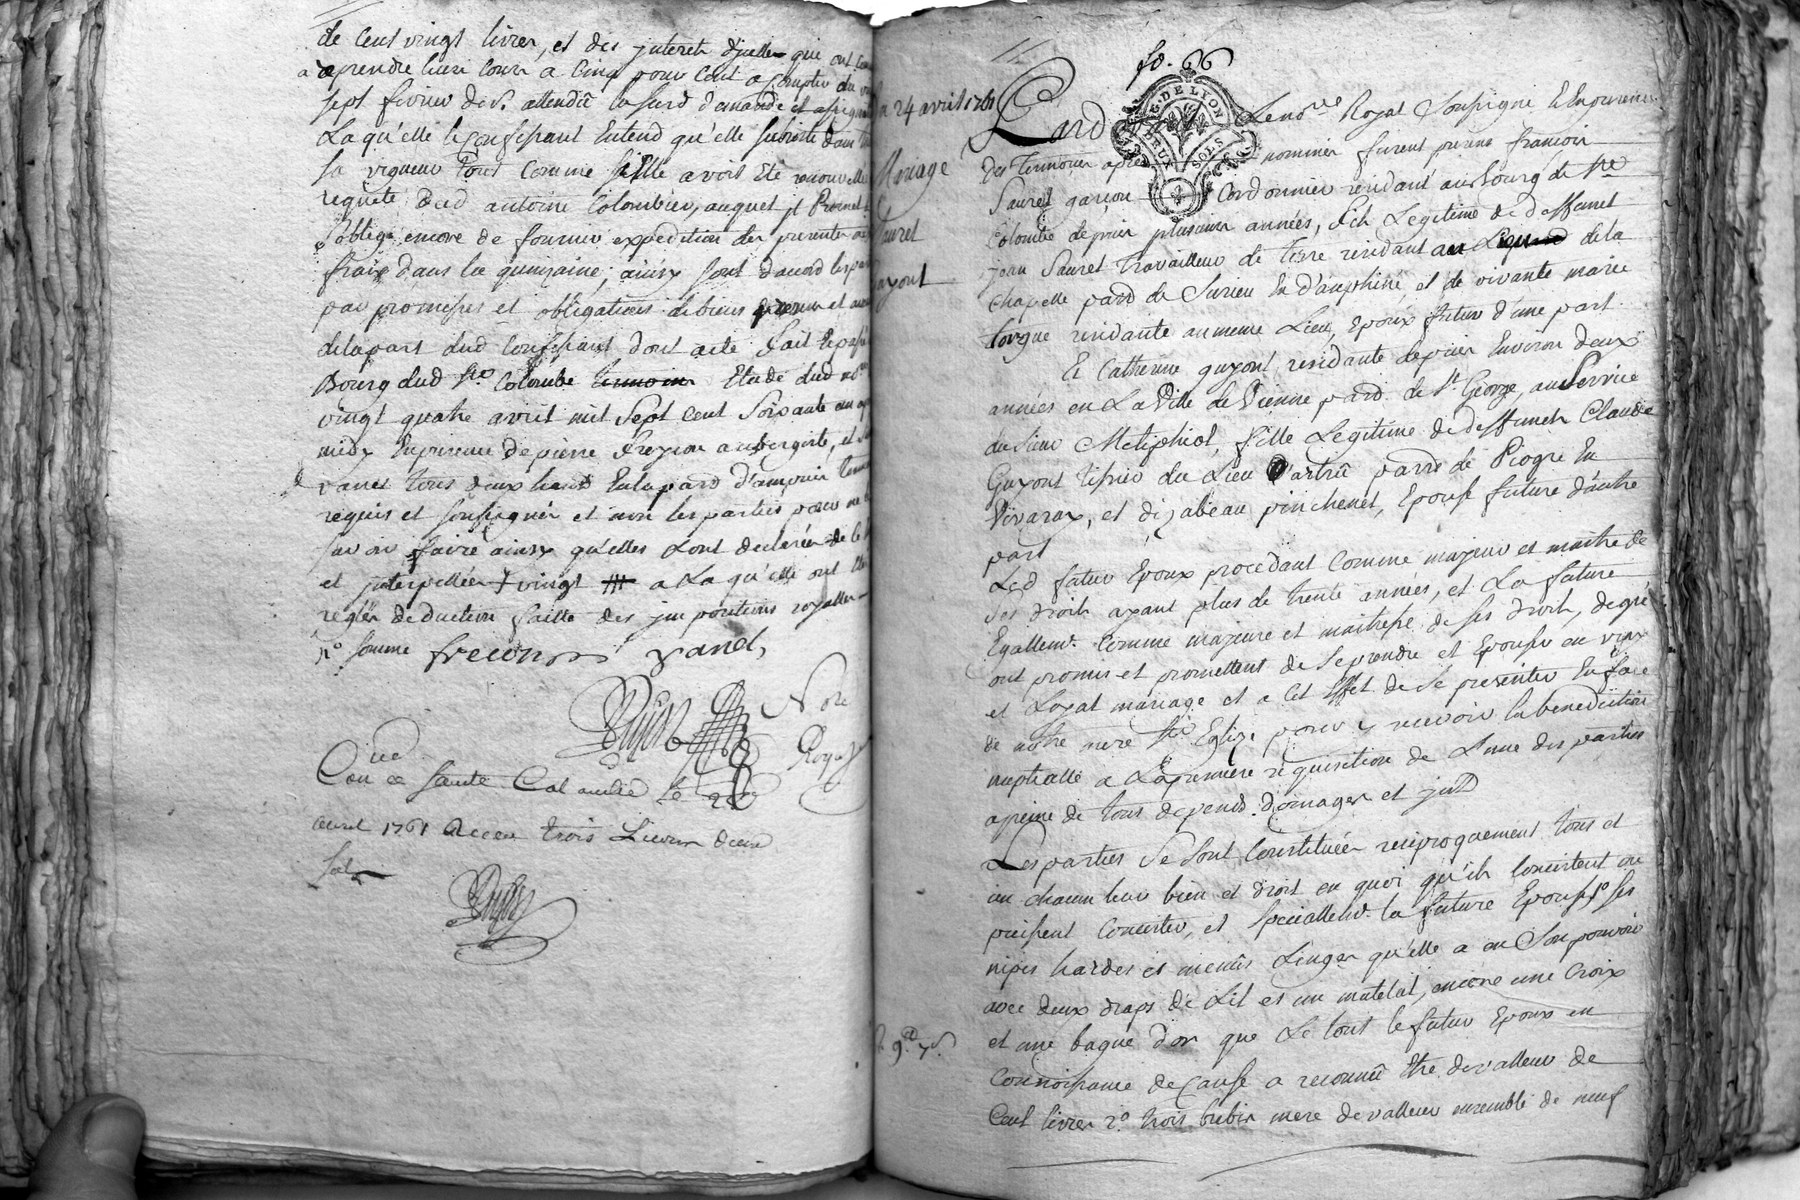 de Cent vingt livres, et des jnterets d'jcelles qui ont
a aprendre leur cour a Cinq pour Cent a Compter du
sept fevrier der. attendu la surd demande et assignation
Laquelle le Confessant Entend qu'elle subsiste dans
sa vigueur tout Comme sy Elle avoit Eté renouvellee
requete dud antoine Colombier, auquel jl Promet
s'oblige encore de fournir expedition des presentes a
fraix dans la quinzaine; ainsy sont d'acord les parties
par promesses et obligations de biens
de la part dud Confessant dont acte fait et passé
Bourg dud Ste. Colombe Etude dud no.re
vingt quatre avril mil sept cent soixante un
midy En presence de pierre freycon aubergiste, et
vanel tous deux
requis et soussignés et non les parties pour ne
savoir faire ainsy qu'elles L'ont declarée de ce
et jnterpellées + vingt a La qu'elle ont
reglés deduction faitte des jmpositions royalles
n.o somme frecon vanel,
Dujast Nore
Royal
Con.lé a Sainte Colombe le 24
avril 1761 Receu trois Livres douze
sols
24 avril 1761
Mariage
Sauret
Guyont
fo. 66
G. DE LYON
DEUX SOLS
Pard Le no.re Royal Soussigné Et En presence
des temoins apres nommés furent presens françois
Sauret garçon Cordonnier residant au bourg de Ste
Colombe depuis plusieurs années, fils Legitime de deffunt
jean Sauret travailleur de terre residant au de la
Chapelle parr de Surieu En d'auphiné et de vivante marie
torgue residante au meme Lieu, Epoux futur d'une part.
Et Catherine guyont residante depuis Environ deux
années en La Ville de Vienne parr. de St George, au Service
du Sieur Metiphiot, fille Legitime de deffunts Claude
Guyont du Lieu parr de Peogre En
Vivarax, et d'jzabeau pinchenet, Epouse future d'autre
part
Led futur Epoux procedant Comme majeur et maitre de
ses droits ayant plus de trente années, et La future
Egallem.t Comme majeure et maitresse de ses droits, de gré
ont promis et promettent de se prendre et Epouser en vray
et Loyal mariage et a Cet Effet de se presenter En face
de notre mere Ste Eglize pour y recevoir la benediction
nuptialle a La premiere requisition de L'une des parties
a peine de tous depends. domages et jnt
Les parties se sont Constituées reciproquement tous et
un chacun leur bien et droit en quoi qu'ils Consistent ou
puissent Consister, et speciallem.t la future Epouse 1.o ses
nipes hardes et menus Linges qu'elle a en Son pouvoir
avec deux draps de Lit et un matelat, encore une Croix
et une bague d'or que Le tout le futur Epoux en
Connoissance de Cause a reconnu Etre de valleur de
Cent livres 2.o trois brebis mere de valleur ensemble de neuf